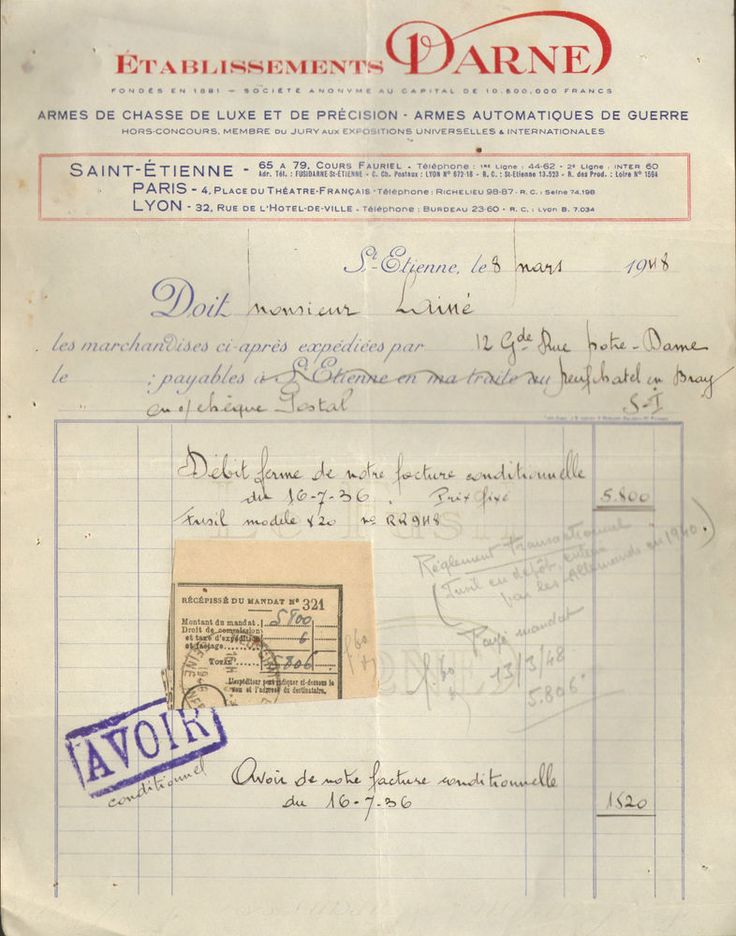 ÉTABLISSEMENTS DARNE
FONDÉS EN 1881 — SOCIÉTÉ ANONYME AU CAPITAL DE 10.500.000 FRANCS
ARMES DE CHASSE DE LUXE ET DE PRÉCISION - ARMES AUTOMATIQUES DE GUERRE
HORS-CONCOURS, MEMBRE DU JURY AUX EXPOSITIONS UNIVERSELLES & INTERNATIONALES
SAINT-ÉTIENNE - 65 A 79, COURS FAURIEL - Téléphone : 1re Ligne : 44-62 - 2e Ligne : INTER 60
Adr. Tél. : FUSIDARNE-St-ETIENNE - C. Ch. Postaux : LYON N° 672-16 - R. C. : St-Etienne 13.523 - R. des Prod. : Loire N° 1594
PARIS - 4, PLACE DU THÉATRE-FRANÇAIS - Téléphone : RICHELIEU 98-87 - R. C. : Seine 74.198
LYON - 32, RUE DE L'HOTEL-DE-VILLE - Téléphone : BURDEAU 23-60 - R. C. : Lyon B. 7.034
St-Etienne, le 8 mars 1948
Doit Monsieur Lainé
les marchandises ci-après expédiées par 12 Gde Rue Notre-Dame
le ; payables à St Etienne en ma traite au Neufchatel en Bray
en o/ chèque Postal S-I
Débit ferme de notre facture conditionnelle
du 16-7-36. Prix fixé 5.800
Fusil modele V20 no RR948
Règlement transactionnel
(Fusil en dépôt, enlevé
par les Allemands en 1940.)
RÉCÉPISSÉ DU MANDAT N° 321
Montant du mandat. 5800
Droit de commission
et taxe d'expédition
et factage. 6
Total 5.806
L'expéditeur peut indiquer ci-dessous le
nom et l'adresse du destinataire.
Payé mandat
13/3/48
5.806
AVOIR
conditionnel
Avoir de notre facture conditionnelle
du 16-7-36 1520